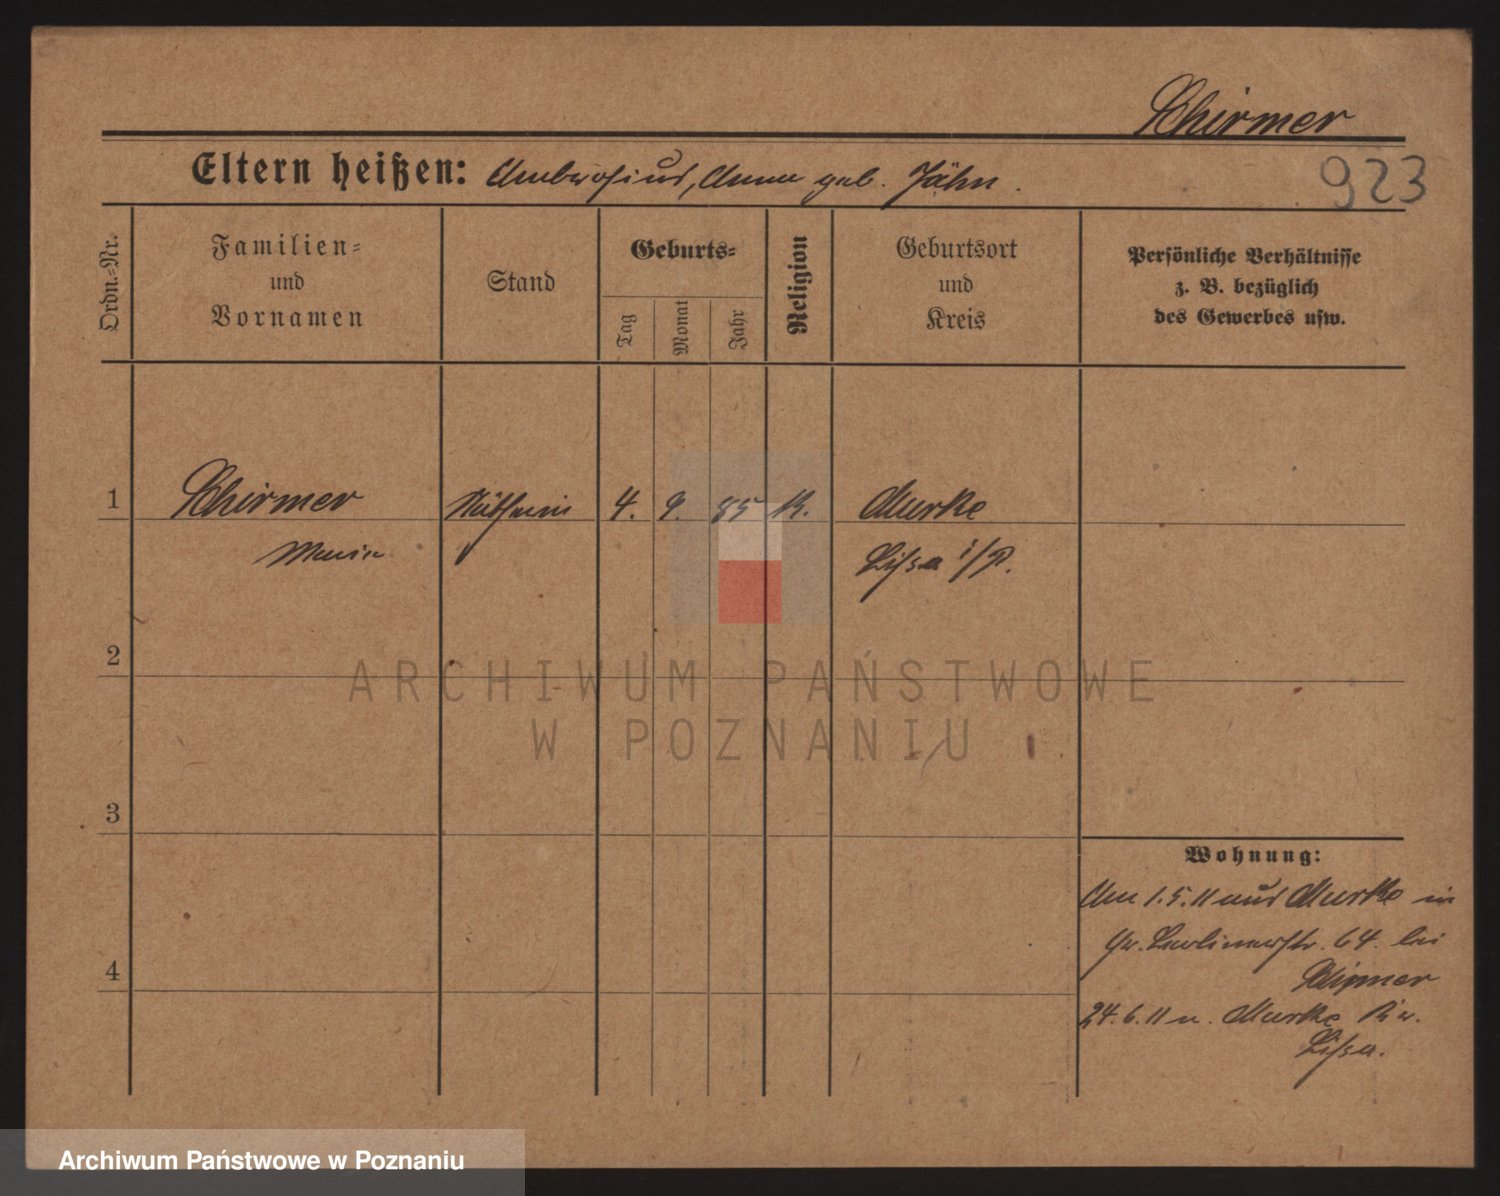 Schirmer
923
Eltern heißen: Ambrosius, Anna geb. Jähn.
Ordn.-Nr.
Familien-
und
Vornamen
Stand
Geburts-
Tag
Monat
Jahr
Religion
Geburtsort
und
Kreis
Persönliche Verhältnisse
z. B. bezüglich
des Gewerbes usw.
1
Schirmer
Maria
4. 9. 85 K.
Murke
Lissa i/P.
2
ARCHIWUM PAŃSTWOWE
W POZNANIU
3
4
Wohnung:
Am 1.5.11 aus Murke in
Gr. Berlinerstr. 64. bei
Schirmer
24.6.11 n. Murke Kr.
Lissa.
Archiwum Państwowe w Poznaniu